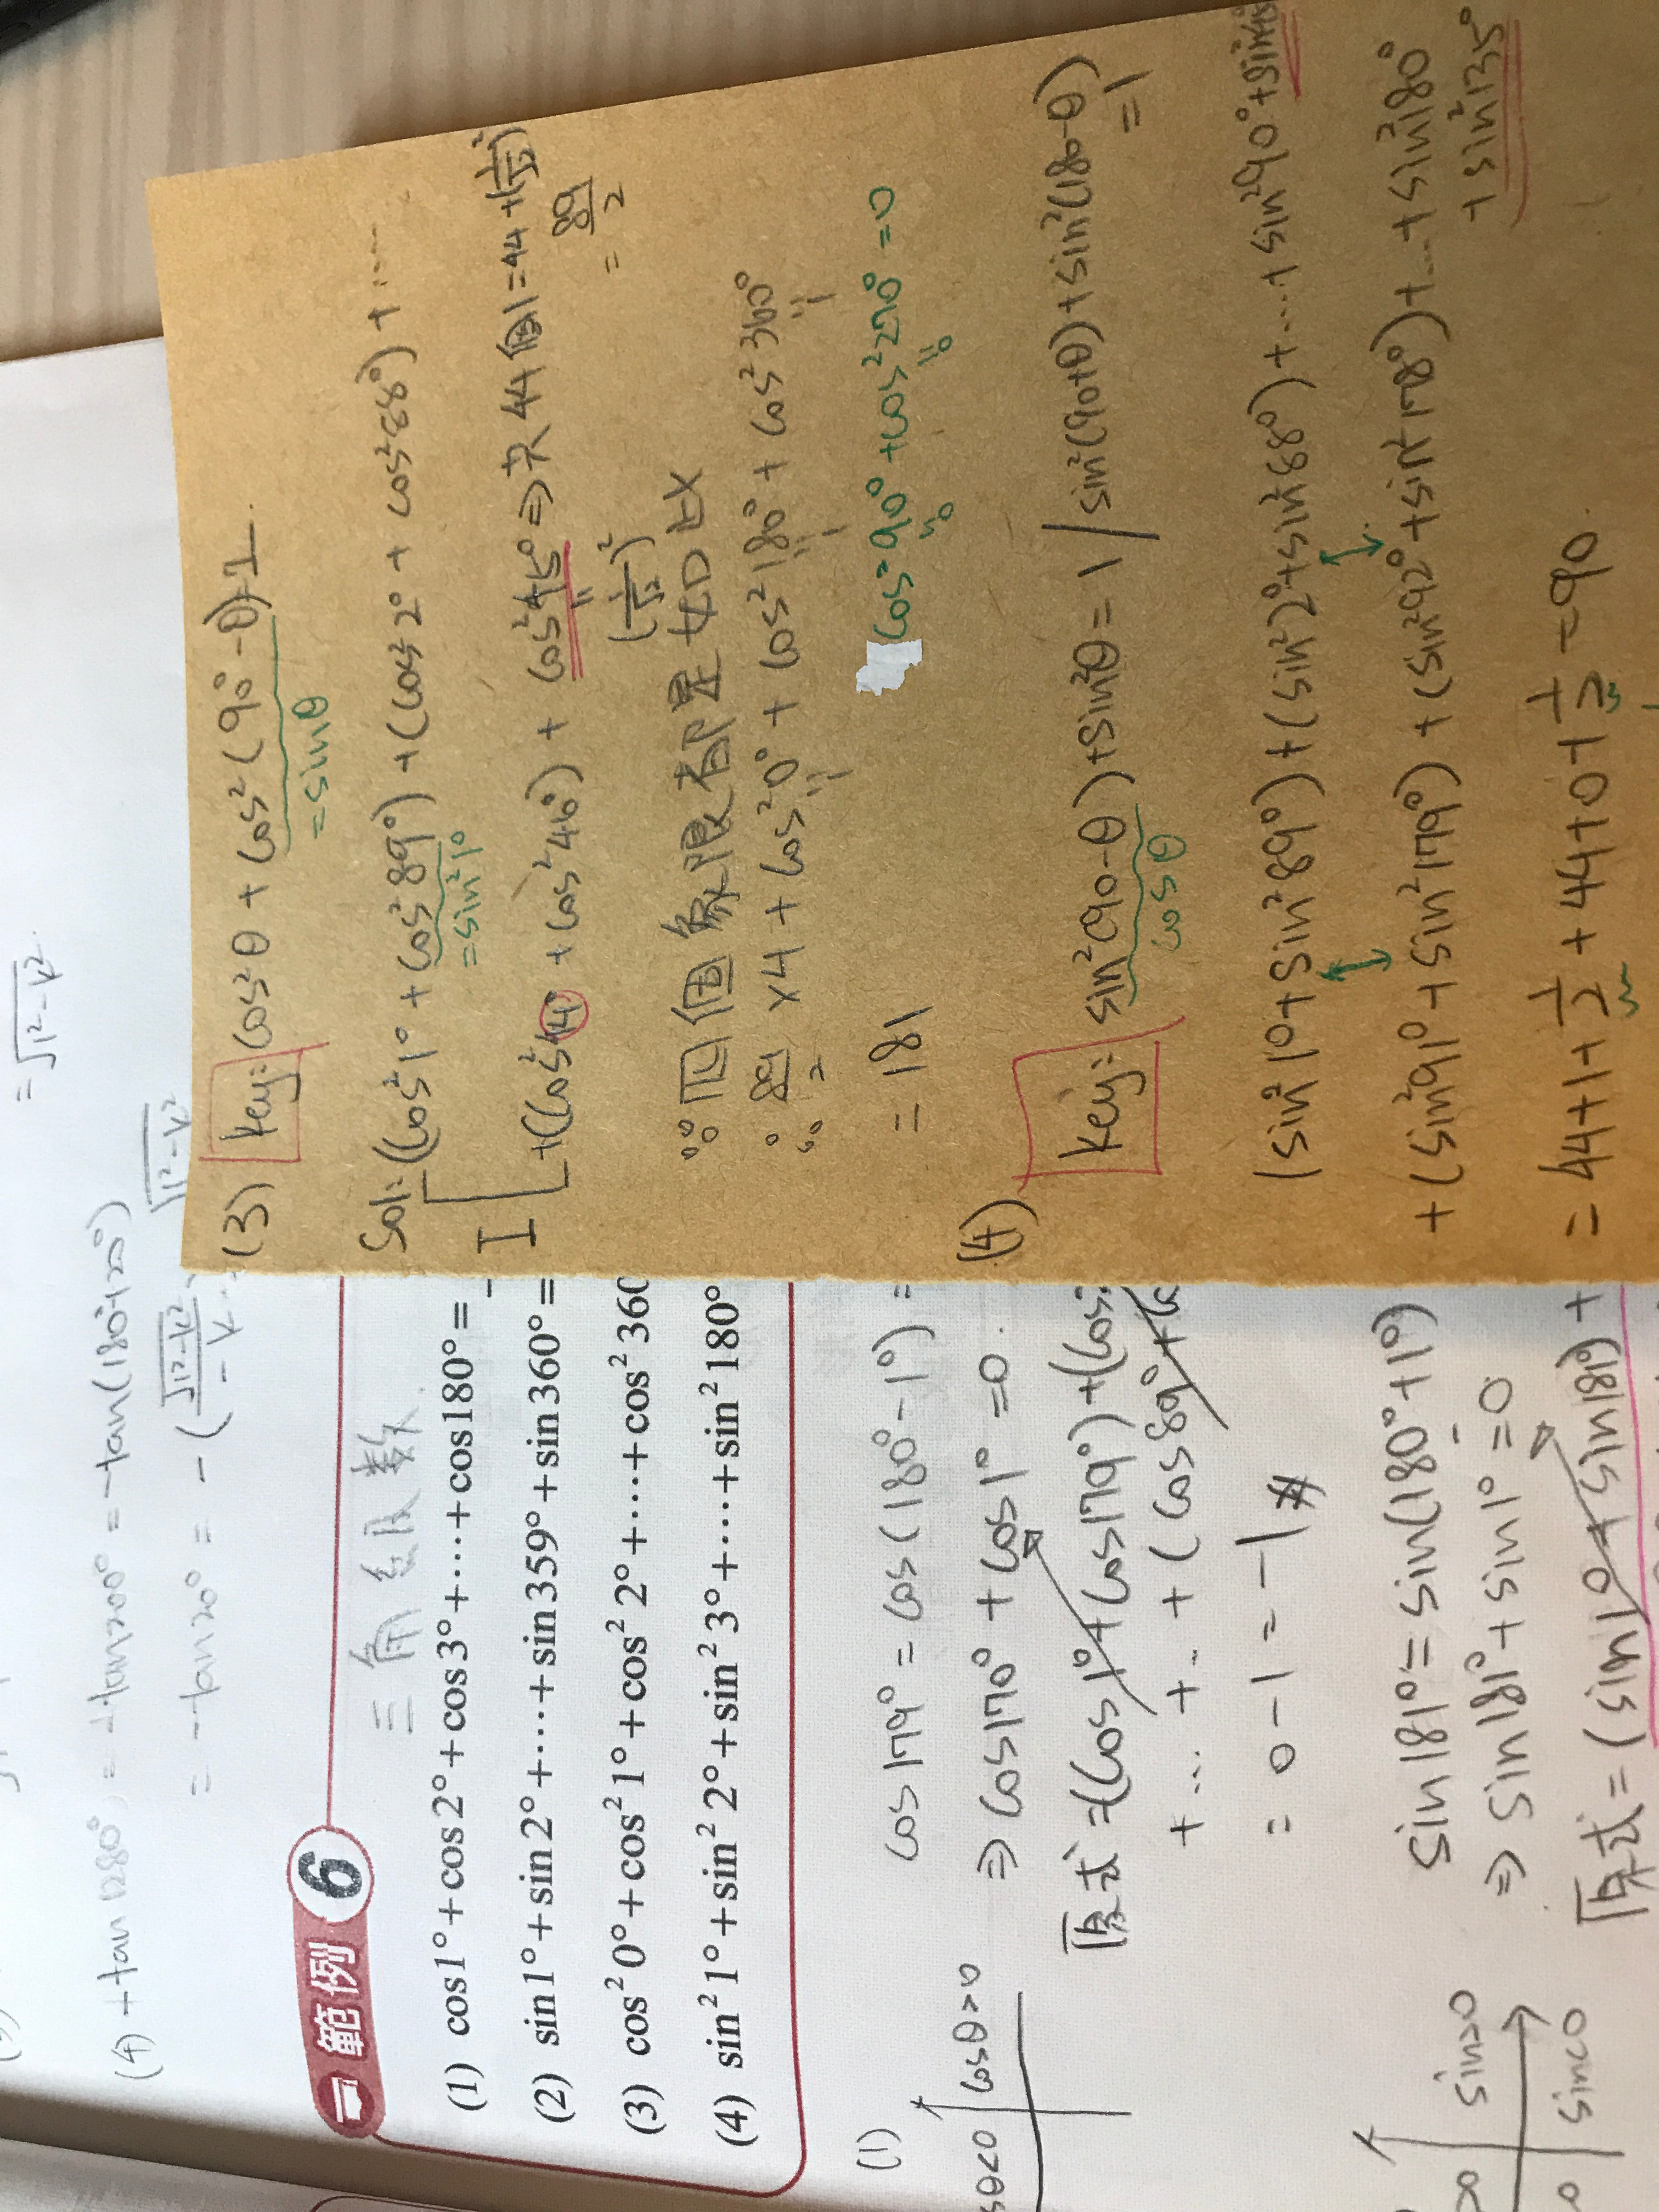 = √1²-k²
(4) +tan1280° = -tan200° = -tan(180°+20°)
= -tan20° = -(√1²-k²/-k
√1²-k²
範例 6
三角級數
(1) cos1°+cos2°+cos3°+…+cos180°=
(2) sin1°+sin2°+…+sin359°+sin360°=
(3) cos²0°+cos²1°+cos²2°+…+cos²360
(4) sin²1°+sin²2°+sin²3°+…+sin²180°
(1)
sθ<0 cosθ>0
cos179° = cos(180°-1°) =
⇒ cos179° + cos1° = 0.
原式 =(cos1°+cos179°)+(cos
+ … + ‥ + (cos89°+
= 0-1 = -1 #
sin>0
sin<0
sin181° = sin(180°+1°)
⇒ sin181° + sin1° = 0
原式 = (sin1°+sin181°)+
(3) key: cos²θ + cos²(90°-θ)=1.
=sinθ
Sol: (cos²1° + cos²89°)+(cos²2° + cos²88°)+……
=sin²1°
I +(cos²44° + cos²46°) + cos²45° ⇒ 共44個1=44+(1/√2)²
(1/√2)² = 89/2
∵ 四個象限都是如此
∴ 89/2 ×4 + cos²0° + cos²180° + cos²360°
1 1 1
= 181
cos²90°+cos²270°=0
0 0
(4) key: sin²(90-θ)+sin²θ=1 / sin²(90+θ)+sin²(180-θ)
cosθ =1
(sin²1°+sin²89°)+(sin²2°+sin²88°)+…+sin²90°+sin²45°
+(sin²91°+sin²179°)+(sin²92°+sin²178°)+…+sin²180°
+sin²135°
=44+1+1/2+44+0+1/2=90